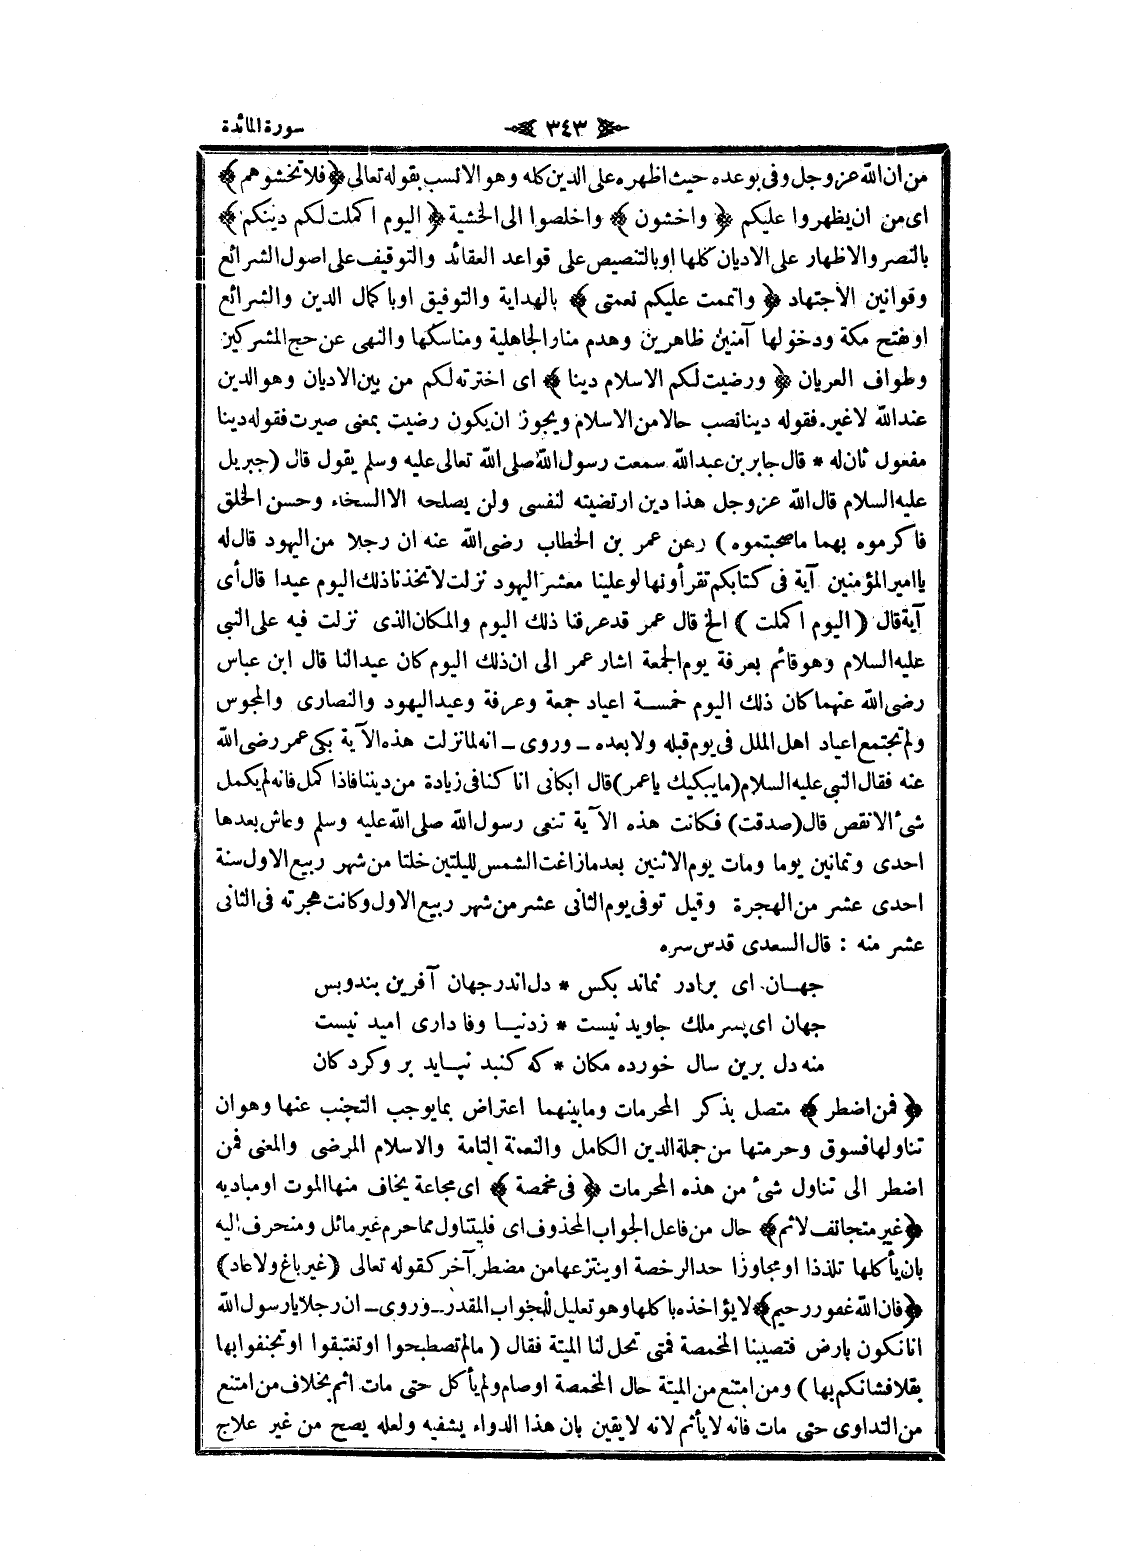 سورة المائدة
﴿ ٣٤٣ ﴾
من ان الله عز وجل وفى بوعده حيث اظهره على الدين كله وهو الانسب بقوله تعالى ﴿ فلا تخشوهم ﴾
اى من ان يظهروا عليكم ﴿ واخشون ﴾ واخلصوا الى الخشية ﴿ اليوم اكملت لكم دينكم ﴾
بالنصر والاظهار على الاديان كلها او بالتنصيص على قواعد العقائد والتوقيف على اصول الشرائع
وقوانين الاجتهاد ﴿ واتممت عليكم نعمتى ﴾ بالهداية والتوفيق او باكمال الدين والشرائع
او بفتح مكة ودخولها آمنين ظاهرين وهدم منار الجاهلية ومناسكها والنهى عن حج المشركين
وطواف العريان ﴿ ورضيت لكم الاسلام دينا ﴾ اى اخترته لكم من بين الاديان وهو الدين
عند الله لا غير . فقوله دينا نصب حالا من الاسلام ويجوز ان يكون رضيت بمعنى صيرت فقوله دينا
مفعول ثان له * قال جابر بن عبد الله سمعت رسول الله صلى الله تعالى عليه وسلم يقول قال ( جبريل
عليه السلام قال الله عز وجل هذا دين ارتضيته لنفسى ولن يصلحه الا السخاء وحسن الخلق
فاكرموه بهما ما صحبتموه ) رعن عمر بن الخطاب رضى الله عنه ان رجلا من اليهود قال له
يا امير المؤمنين آية فى كتابكم تقرأونها لو علينا معشر اليهود نزلت لاتخذنا ذلك اليوم عيدا قال أى
آية قال ( اليوم اكملت ) الخ قال عمر قد عرفنا ذلك اليوم والمكان الذى نزلت فيه على النبى
عليه السلام وهو قائم بعرفة يوم الجمعة اشار عمر الى ان ذلك اليوم كان عيدا لنا قال ابن عباس
رضى الله عنهما كان ذلك اليوم خمسة اعياد جمعة وعرفة وعيد اليهود والنصارى والمجوس
ولم تجتمع اعياد اهل الملل فى يوم قبله ولا بعده ـ وروى ـ انه لما نزلت هذه الآية بكى عمر رضى الله
عنه فقال النبى عليه السلام ( ما يبكيك يا عمر ) قال ابكانى انا كنا فى زيادة من ديننا فاذا كمل فانه لم يكمل
شىء الا نقص قال ( صدقت ) فكانت هذه الآية تنعى رسول الله صلى الله عليه وسلم وعاش بعدها
احدى وثمانين يوما ومات يوم الاثنين بعد ما زاغت الشمس لليلتين خلتا من شهر ربيع الاول سنة
احدى عشر من الهجرة وقيل توفى يوم الثانى عشر من شهر ربيع الاول وكانت هجرته فى الثانى
عشر منه : قال السعدى قدس سره
جهان اى برادر نماند بكس * دل اندر جهان آفرين بندوبس
جهان اى پسر ملك جاويد نيست * زدنيا وفادارى اميد نيست
منه دل برين سال خورده مكان * كه كنبد نپايد بر وكردكان
﴿ فمن اضطر ﴾ متصل بذكر المحرمات وما بينهما اعتراض بما يوجب التجنب عنها وهو ان
تناولها فسوق وحرمتها من جملة الدين الكامل والنعمة التامة والاسلام المرضى والمعنى فمن
اضطر الى تناول شىء من هذه المحرمات ﴿ فى مخمصة ﴾ اى مجاعة يخاف منها الموت او مباديه
﴿ غير متجانف لاثم ﴾ حال من فاعل الجواب المحذوف اى فليتناول مما حرم غير مائل ومنحرف اليه
بان يأكلها تلذذا او مجاوزا حد الرخصة او ينتزعها من مضطر آخر كقوله تعالى ( غير باغ ولا عاد )
﴿ فان الله غفور رحيم ﴾ لا يؤاخذه باكلها وهو تعليل للجواب المقدر ـ وروى ـ ان رجلا يا رسول الله
انا نكون بارض فتصيبنا المخمصة فمتى تحل لنا الميتة فقال ( ما لم تصطبحوا او تغتبقوا او تجتفوا بها
بقلا فشانكم بها ) ومن امتنع من الميتة حال المخمصة او صام ولم يأكل حتى مات اثم بخلاف من امتنع
من التداوى حتى مات فانه لا يأثم لانه لا يقين بان هذا الدواء يشفيه ولعله يصح من غير علاج